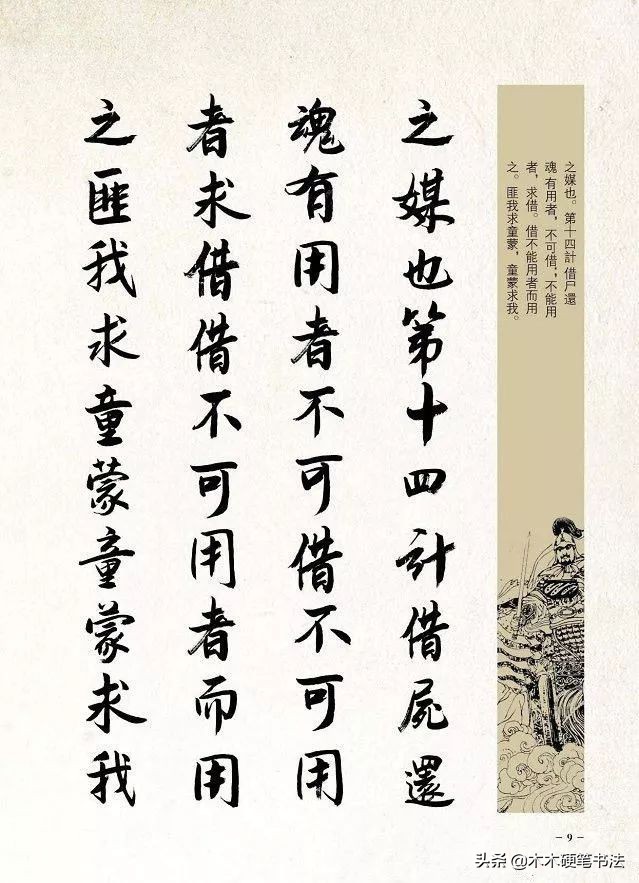 之媒也。第十四計 借尸還
魂 有用者，不可借；不能用
者，求借。借不能用者而用
之。匪我求童蒙，童蒙求我。
之媒也第十四計借屍還
魂有用者不可借不可用
者求借借不可用者而用
之匪我求童蒙童蒙求我
- 9 -
头条 @木木硬笔书法